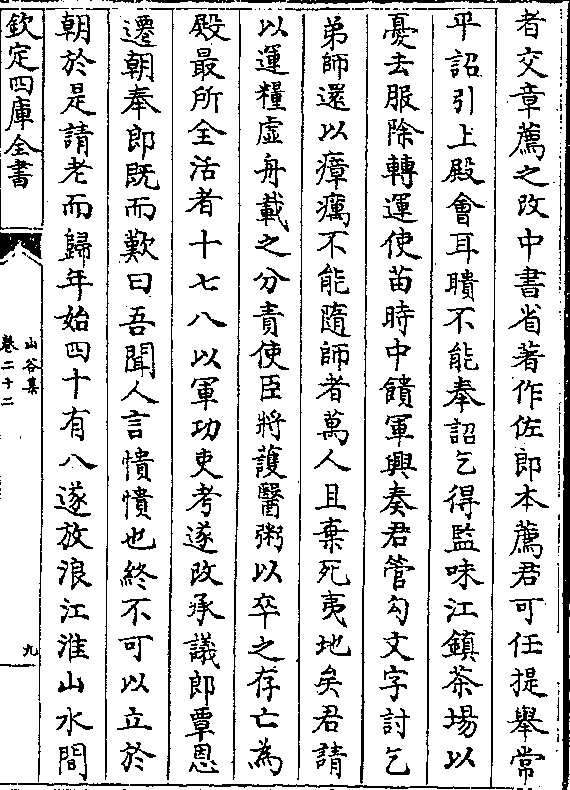 者交章薦之改中書省著作佐郎本薦君可任提舉常
平詔引上殿會耳聵不能奉詔乞得監味江鎮茶場以
憂去服除轉運使苗時中饋軍興奏君管勾文字討乞
弟師還以瘴癘不能隨師者萬人且棄死夷地矣君請
以運糧虛舟載之分責使臣將護醫粥以卒之存亡為
殿最所全活者十七八以軍功吏考遂改承議郎覃恩
遷朝奉郎既而歎曰吾聞人言憒憒也終不可以立於
朝於是請老而歸年始四十有八遂放浪江淮山水間
欽定四庫全書
山谷集
卷二十二
九